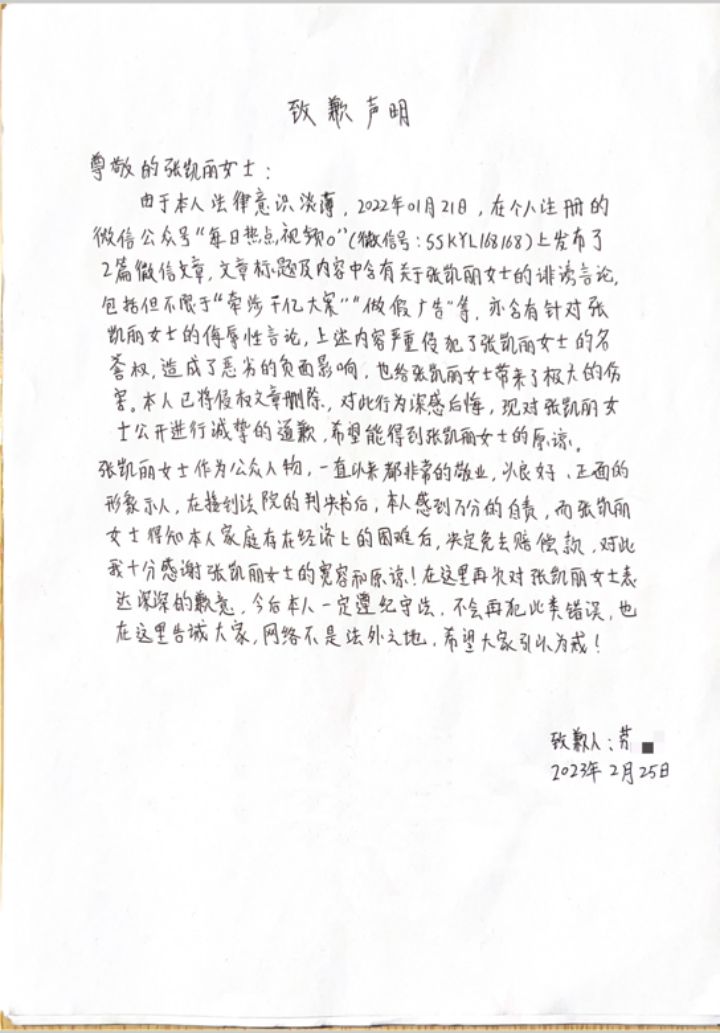 致歉声明
尊敬的张凯丽女士：
由于本人法律意识淡薄，2022年01月21日，在个人注册的
微信公众号“每日热点视频o”(微信号：SSKYL168168)上发布了
2篇微信文章，文章标题及内容中含有关于张凯丽女士的诽谤言论，
包括但不限于“牵涉千亿大案”“做假广告”等，亦含有针对张
凯丽女士的侮辱性言论，上述内容严重侵犯了张凯丽女士的名
誉权，造成了恶劣的负面影响，也给张凯丽女士带来了极大的伤
害。本人已将侵权文章删除，对此行为深感后悔，现对张凯丽女
士公开进行诚挚的道歉，希望能得到张凯丽女士的原谅。
张凯丽女士作为公众人物，一直以来都非常的敬业，以良好、正面的
形象示人，在接到法院的判决书后，本人感到万分的自责，而张凯丽
女士得知本人家庭存在经济上的困难后，决定免去赔偿款，对此
我十分感谢张凯丽女士的宽容和原谅！在这里再次对张凯丽女士表
达深深的歉意，今后本人一定遵纪守法，不会再犯此类错误，也
在这里告诫大家，网络不是法外之地，希望大家引以为戒！
致歉人：劳
2023年2月25日